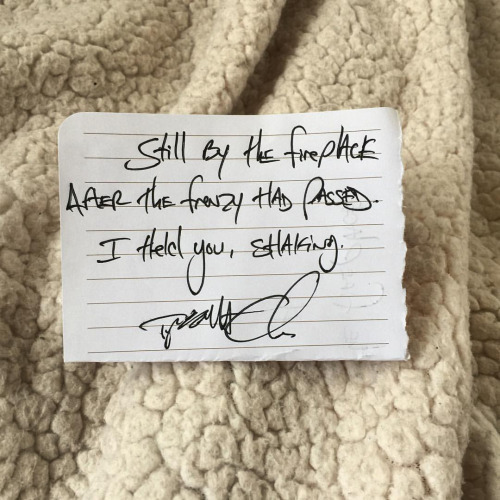 Still By the fireplace
After the frenzy had passed.
I held you, shaking.